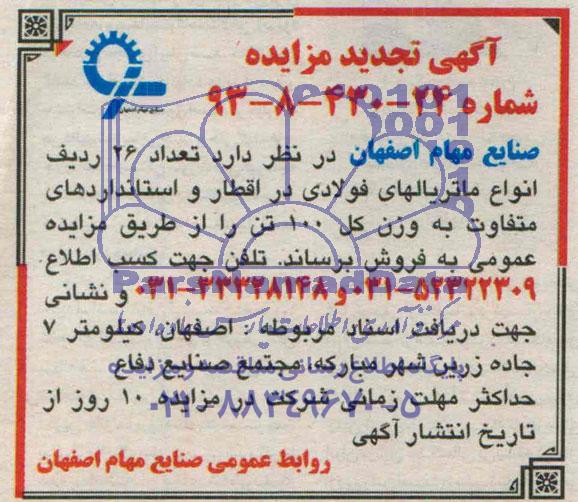 آگهی تجدید مزایده
شماره ۲۴-۴۳۰-۸-۹۳
صنایع مهام اصفهان
صنایع مهام اصفهان در نظر دارد تعداد ۲۶ ردیف
انواع ماتریالهای فولادی در اقطار و استانداردهای
متفاوت به وزن کل ۱۰۰ تن را از طریق مزایده
عمومی به فروش برساند. تلفن جهت کسب اطلاع
۰۳۱-۵۲۳۲۲۳۰۹ و ۰۳۱-۳۳۳۲۸۱۴۸ و نشانی
جهت دریافت اسناد مربوطه: اصفهان، کیلومتر ۷
جاده زرین شهر مبارکه، مجتمع صنایع دفاع
حداکثر مهلت زمانی شرکت در مزایده ۱۰ روز از
تاریخ انتشار آگهی
روابط عمومی صنایع مهام اصفهان
ParsNamadData
۰۲۱-۸۸۳۴۹۶۷۰-۵